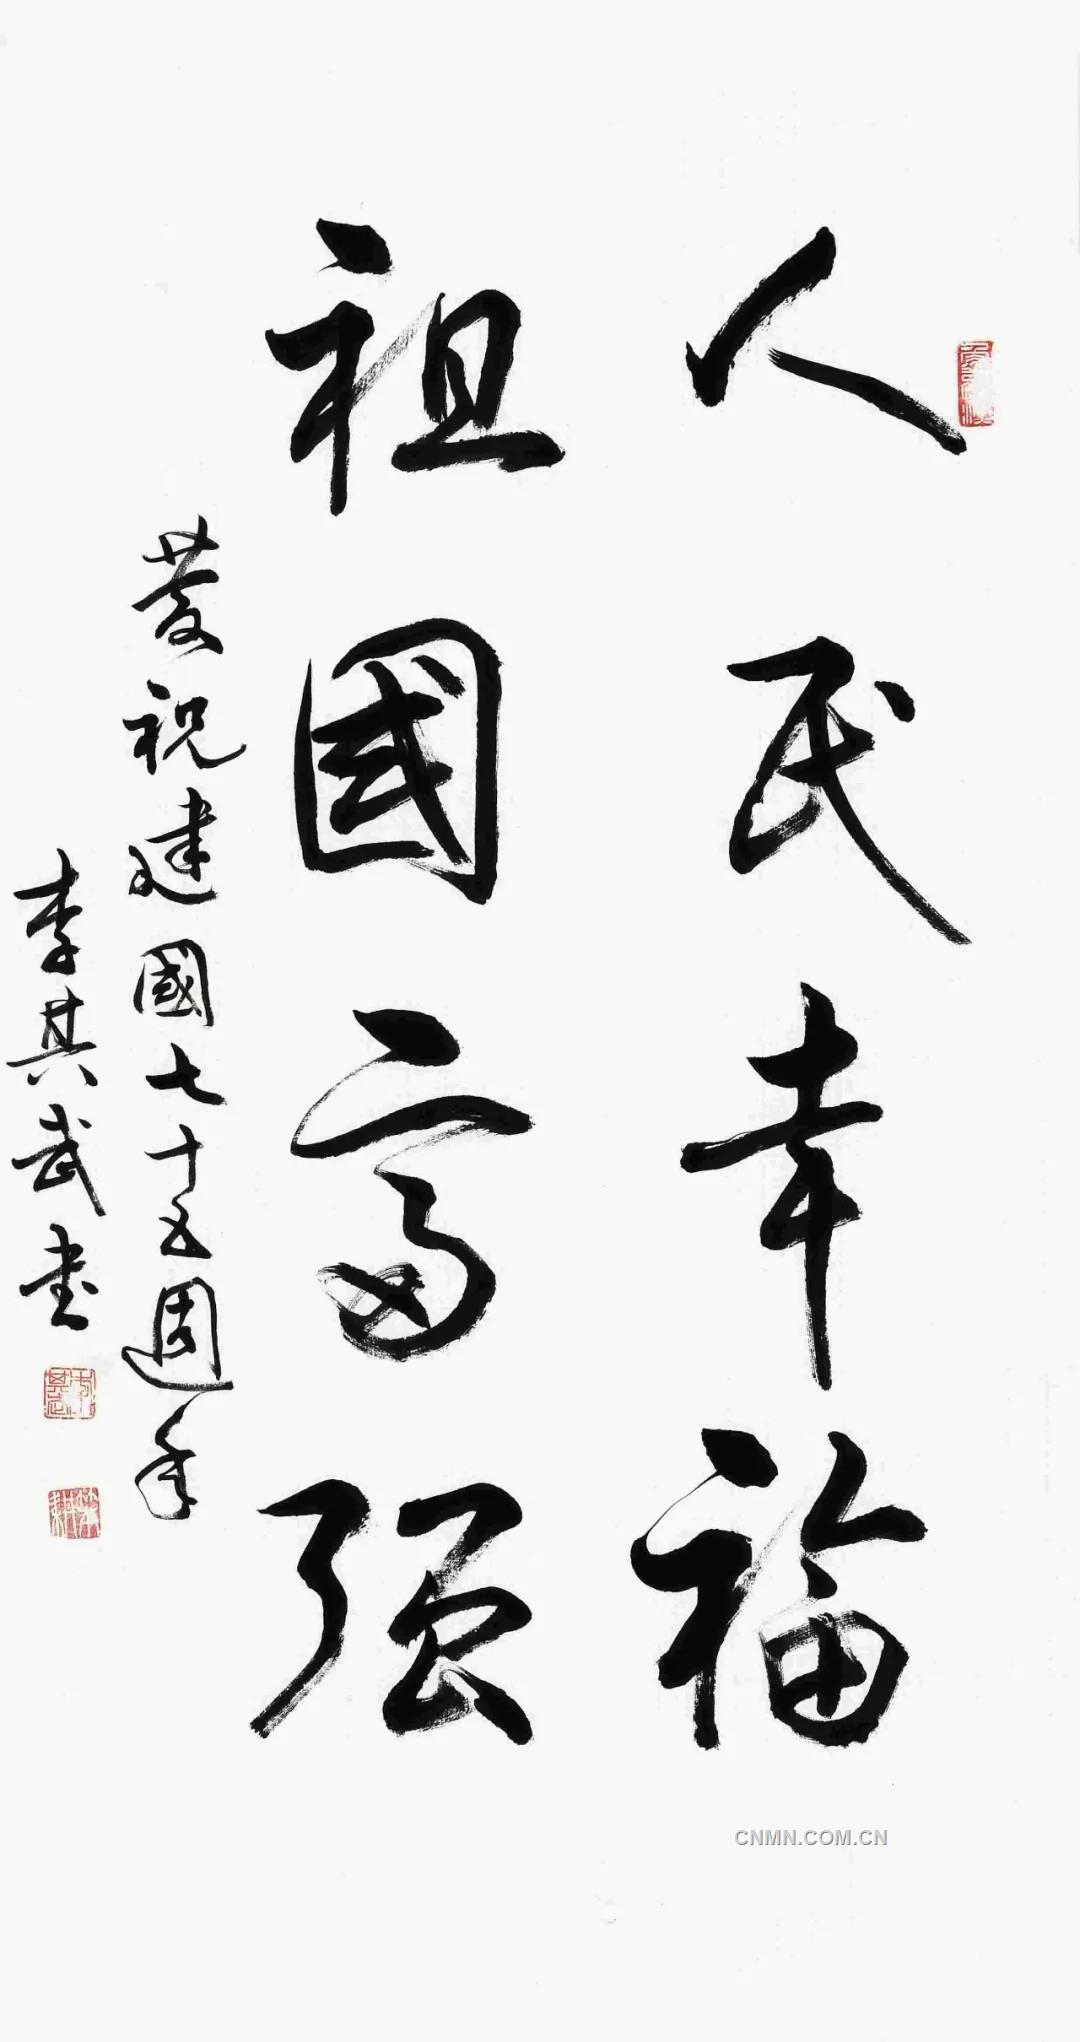 人民幸福
祖國富强
慶祝建國七十五週年
李其武书
CNMN.COM.CN